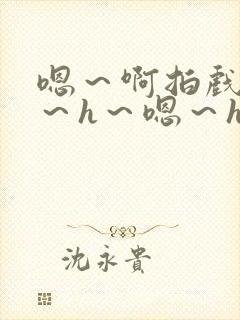 嗯～啊拍戲
～h～嗯～h
沈永貴